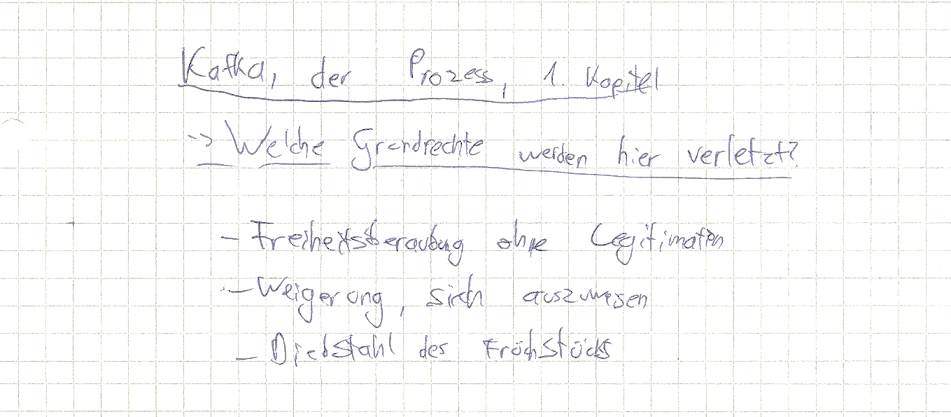 Kafka, der Prozess, 1. Kapitel
-> Welche Grundrechte werden hier verletzt?
- Freiheitsberaubung ohne Legitimation
- Weigerung, sich auszuweisen
- Diebstahl des Frühstücks